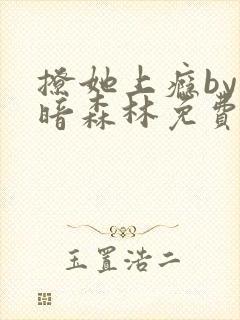 撩她上瘾by
暗森林免费
玉置浩二